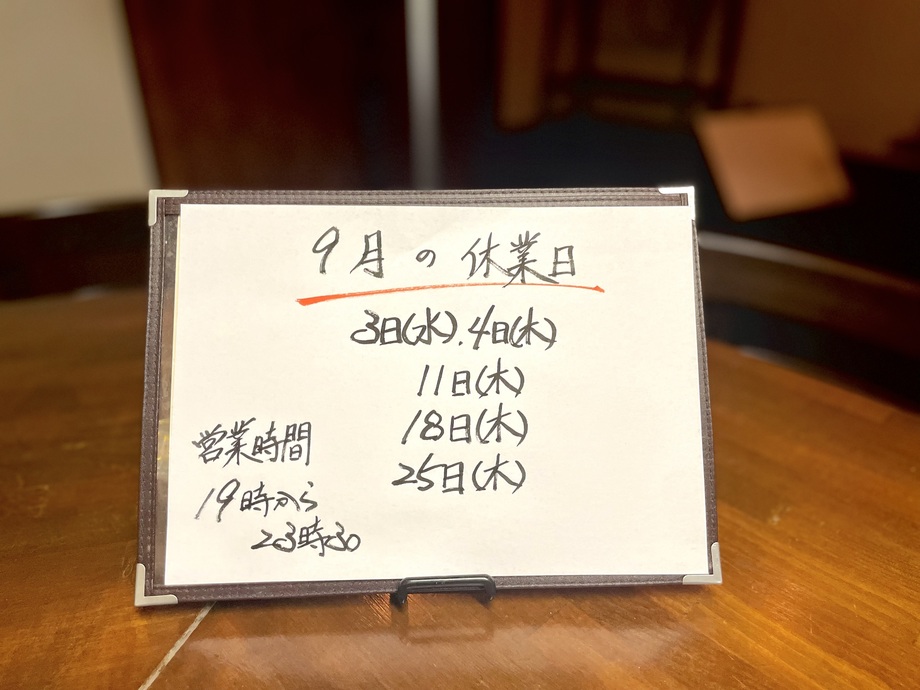 9月の休業日
3日(水).4日(木)
11日(木)
18日(木)
25日(木)
営業時間
19時から
23時30